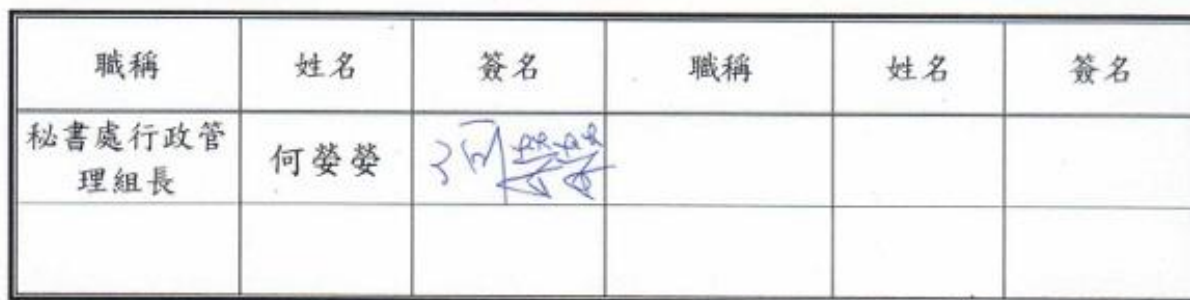 職稱 姓名 簽名 職稱 姓名 簽名
秘書處行政管
理組長
何嫈嫈
何嫈嫈